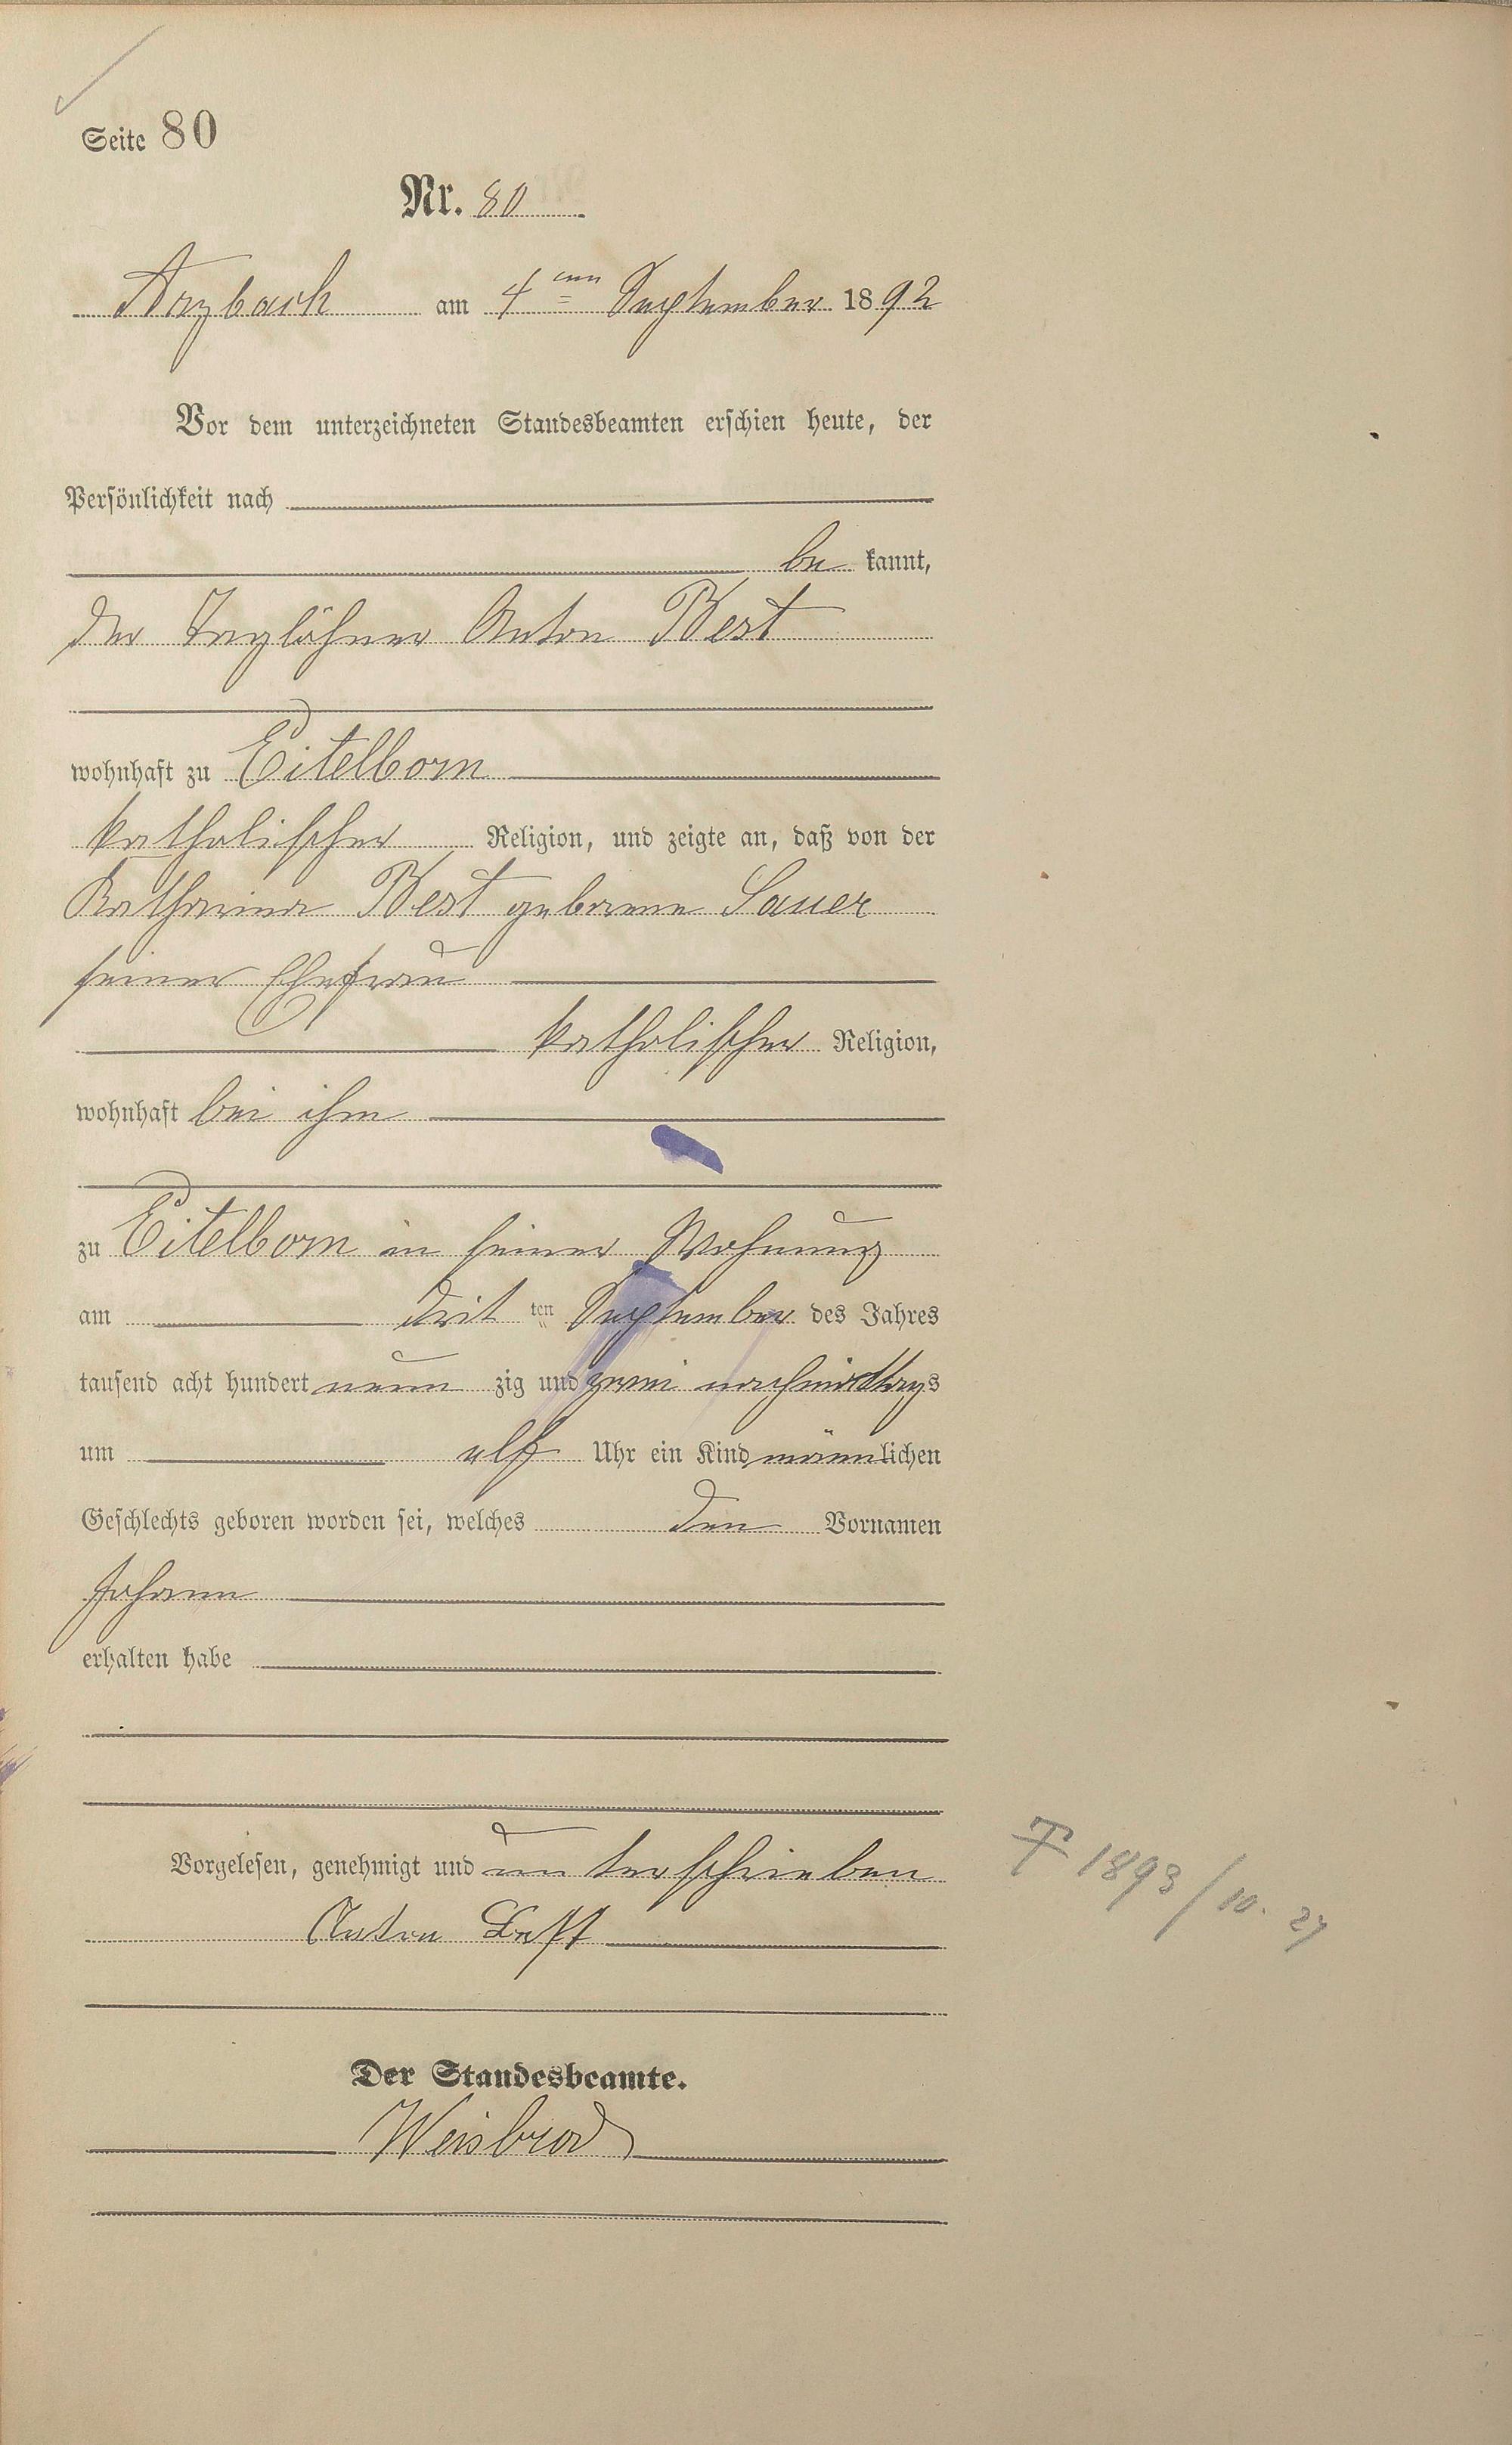 Seite 80
Nr. 80
Arzbach am 4ten September 1892
Vor dem unterzeichneten Standesbeamten erschien heute, der
Persönlichkeit nach
be kannt,
der Taglöhner Anton Best
wohnhaft zu Eitelborn
katholischer Religion, und zeigte an, daß von der
Katharina Best geborene Sauer
seiner Ehefrau
katholischer Religion,
wohnhaft bei ihm
zu Eitelborn in seiner Wohnung
am drit ten September des Jahres
tausend acht hundert neun zig und zwei nachmittags
um elf Uhr ein Kind männlichen
Geschlechts geboren worden sei, welches den Vornamen
Johann
erhalten habe
Vorgelesen, genehmigt und unterschrieben
Anton Best
† 1893/10. 27
Der Standesbeamte.
Weisbrod